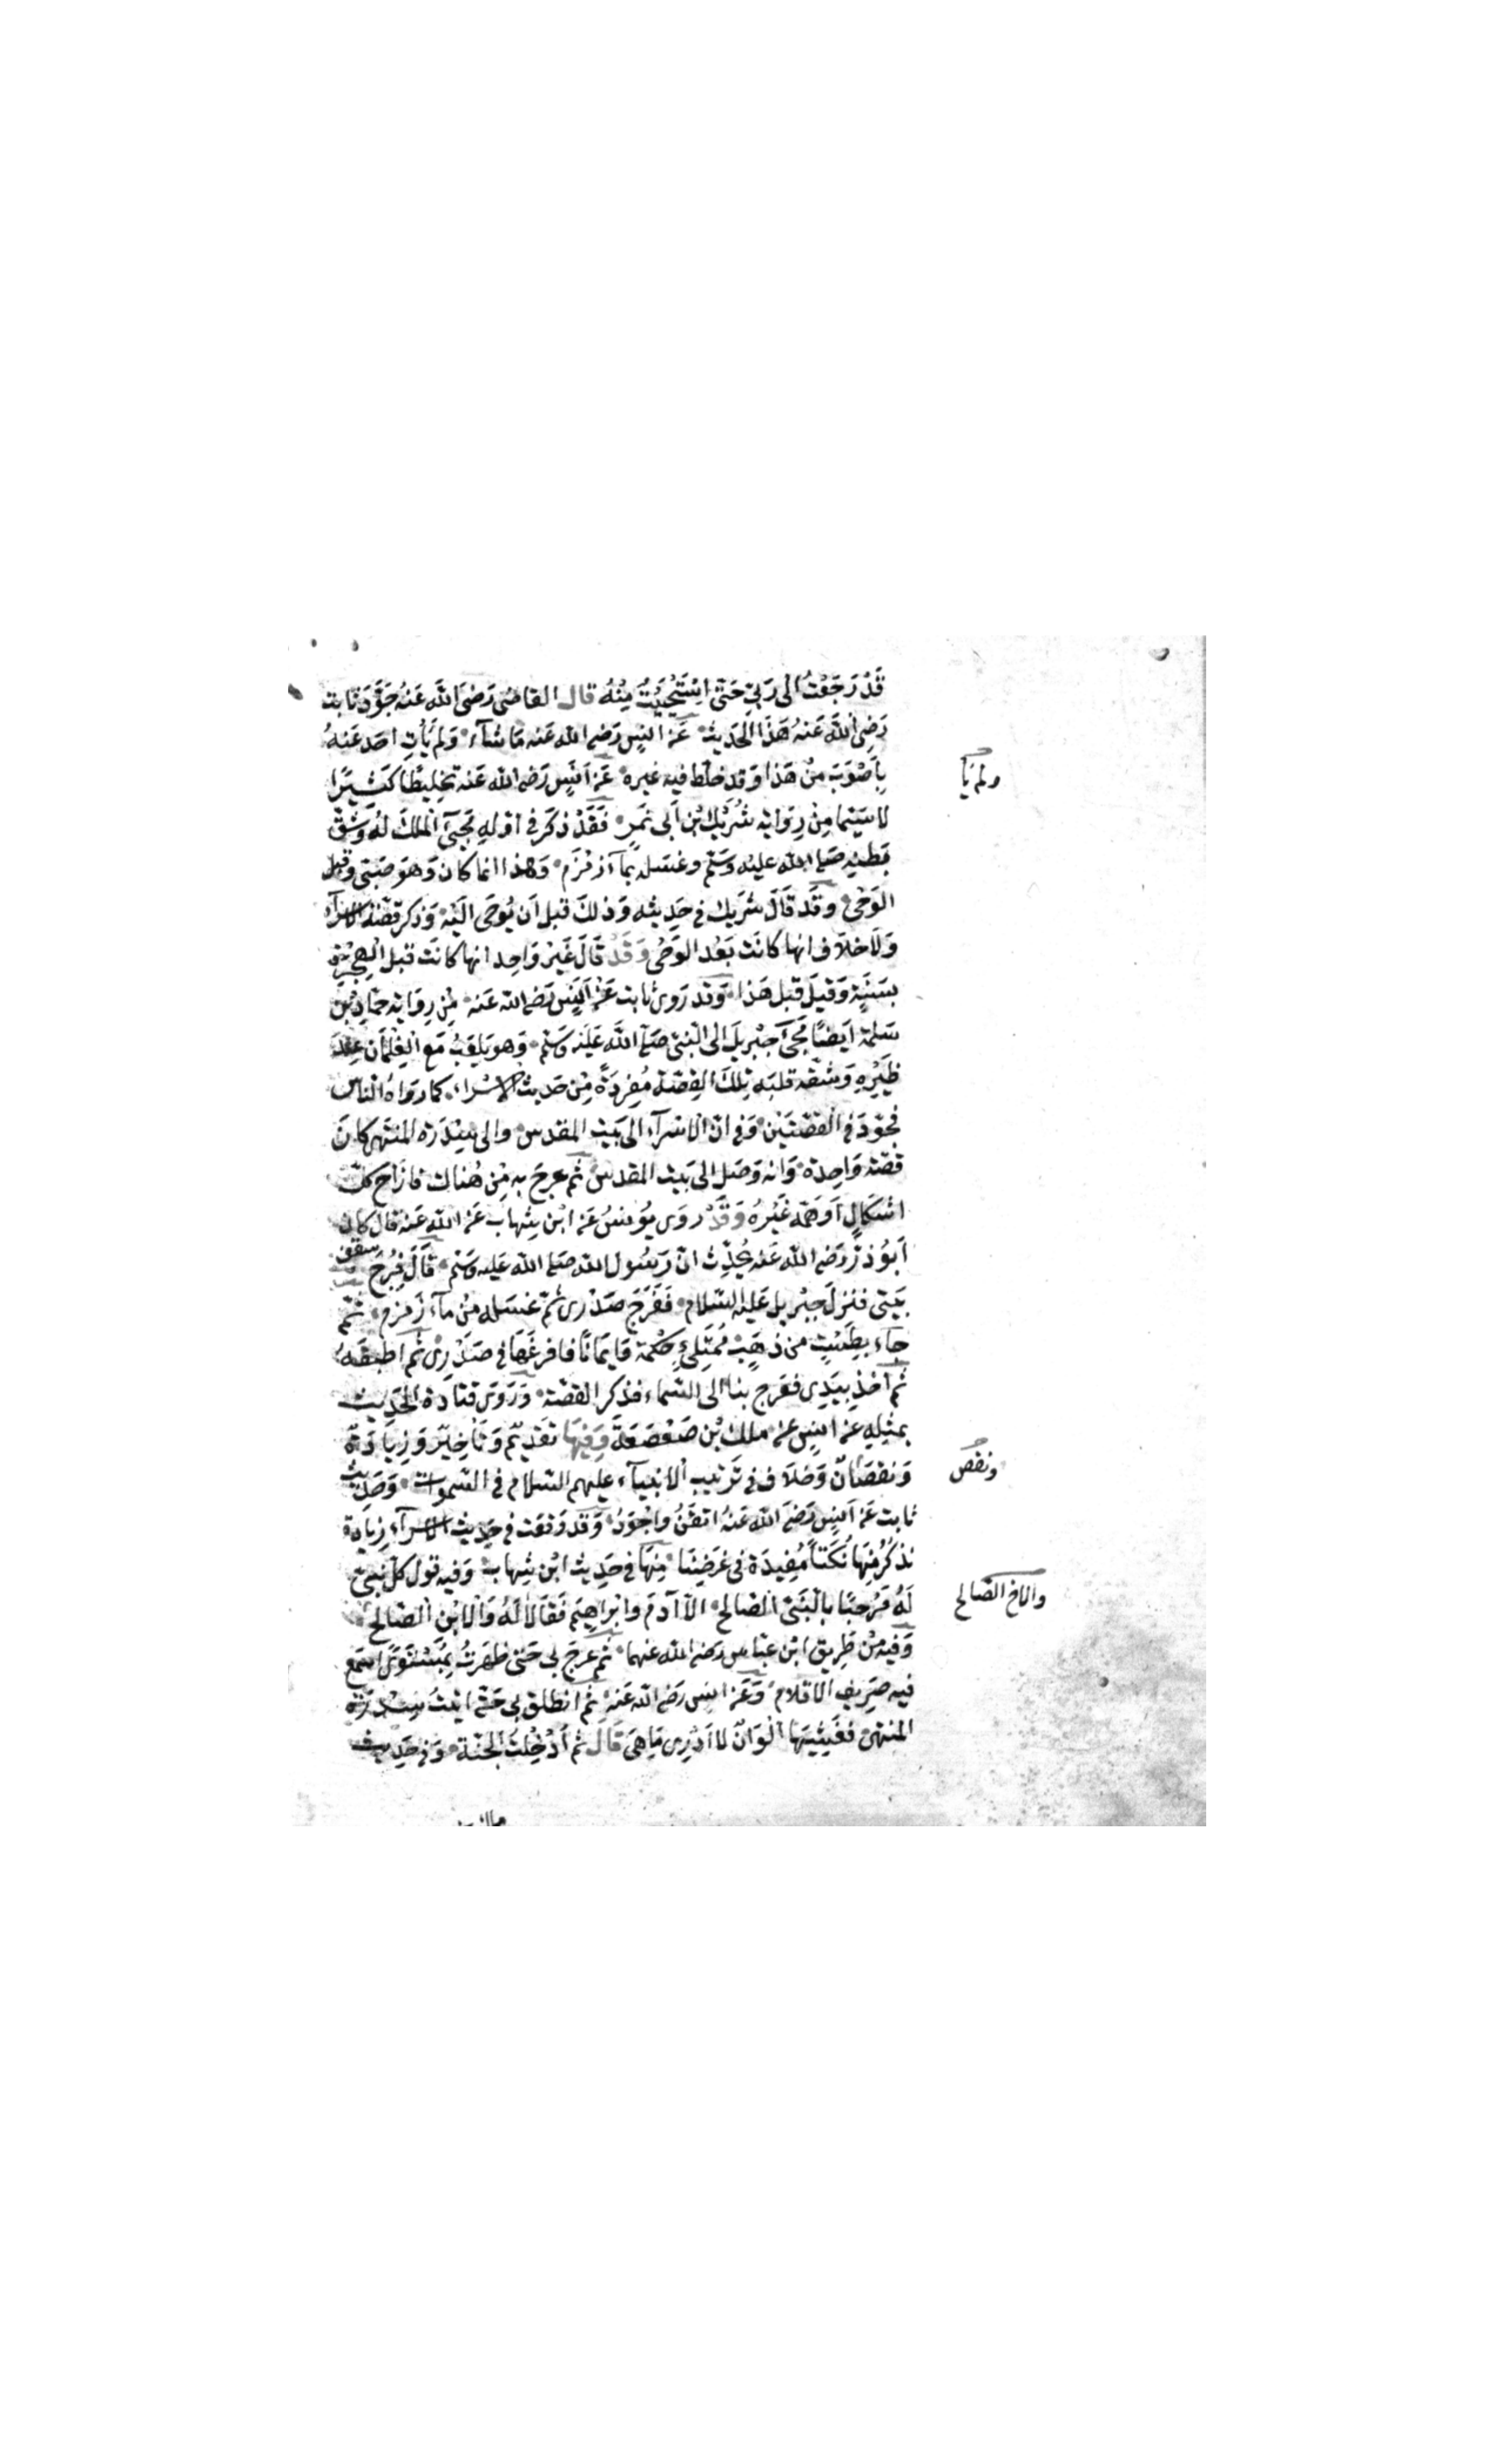 قَدْ رَجَعْتُ الى رَبِّى حَتَّى اسْتَحْيَيْتُ مِنْهُ قال القاضى رَضِىَ اللَّه عَنْهُ جَوَّدَ ثابت
رَضِىَ اللَّه عَنْهُ هَذَا الحَدِيث عَنْ انسٍ رَضى الله عَنه مَا شآء وَلم يَأْتِ احَد عَنْهُ
بِأصْوَبَ مِنْ هَذا وَقد خلط فيه غيره عَنْ انَسٍ رَضى الله عَنه تخلِيطًا كَثِيرًا
لا سَيّما مِنْ رِوَاية شَرِيك بْن اَبى نَمِرٍ فَقَدْ ذكَرَ فى اوّلهِ مَجِىَٔ الْمَلَك لهُ وَشقّ
بَطنِه صَلى الله عليْه وَسَلم وغسَله بمآء زمْزَم وَهذا انما كان وَهوَ صَبىّ وَقبل
الوَحْى وقَد قَالَ شَرِيك فى حَدِيثه وَذلكَ قبل اَن يُوحَى الَيْه وَذكر قصّة الاسرآء
وَلَا خلاف انها كانَت بَعْد الوَحْى وَقَدْ قَالَ غَيْر وَاحِد انها كانَت قبْل الهِجْرَة
بسَنَةٍ وَقيلَ قبْل هَذا وَقد رَوى ثابت عَنْ اَنَسٍ رَضى الله عَنه مِنْ رِوَاية حَمّاد بْن
سَلمة اَيضًا مَجِىَٔ جبْريلَ الى النّبىّ صَلى اللَّه عَليْه وَسَلم وَهوَ يَلعَبُ مَع الغِلْمَان عِنْدَ
ظِئْرِهِ وَشَقّه قَلبَه تِلكَ القِصّة مُفرَدَةً مِنْ حَديث الاسْراء كما رَوَاهُ النّاس
فجَوّدَ فى القصّتَيْن وَفى انّ الاسْرآء الى بَيْت المقدس والى سِدْرَة المنتهى كانَ
قصّة وَاحِدة وَانه وَصَل الى بَيت المقدس ثم عرجَ به مِنْ هُناك فأزَاح كلّ
اشكَالٍ اَوهَمَهُ غَيْرُهُ وَقَدْ رَوَى يُونسُ عَن ابْن شِهاب عَنْ الله عَنه قال كان
اَبُو ذرّ رَضى الله عَنه يُحَدِّث انّ رَسُول الله صَلى الله عَليه وَسَلم قَالَ فُرِجَ سقف
بَيتى فنزلَ جبْريل عَليْه السّلام فَفَرَجَ صَدْرى ثمّ غسَله مِنْ مآء زَمزم ثُمّ
جآء بِطَسْتٍ من ذهَبٍ مُمْتَلِئٍ حِكْمة وَايمَانًا فافرغَهَا فى صَدْرِى ثم اطبقَهُ
ثم اخَذ بِيَدِى فعَرج بنا الى السّمآء فذكر القصّة وَرَوَى قتادَة الحَدِيث
بمثلِهِ عَنْ انسٍ عَنْ ملك بْن صَعْصَعَة وَفِيهَا تقديْم وَتَأخِيرٌ وَزِيَادَة
وَنقصَانٌ وَخلَاف فى تَرْتِيب الانبيآء عليهم السّلام فى السّموات وَحَدِيثُ
ثابت عَنْ اَنَسٍ رَضى الله عَنْهُ اتقَنُ واجْوَدُ وَقد وَقعَت فى حَدِيث الاسرآء زِيَادَة
نذكُرُ مِنها نُكَتاً مُفِيدَة فى غرَضِنَا مِنهَا فى حَدِيث ابْن شِهاب وَفيه قول كلّ نَبِىّ
لَهُ مَرْحبًا بالنّبىّ الصّالح الّا آدَم وابْراهِيم فقَالا لَهُ وَالابْن الصّالح
وَفيه مِنْ طَرِيق ابْن عَبّاس رَضى الله عنهما ثم عرجَ بى حَتى ظهَرْتُ بِمُسْتَوًى اسْمَع
فيه صَرِيف الاقلام وَعَنْ انس رَضى الله عَنْهُ ثم انْطَلق بى حَتّى اتيْتُ سِدْرَة
المنتهى فغَشِيَهَا اَلْوَانٌ لا اَدْرِى مَا هِىَ قَالَ ثم اُدْخِلتُ الجَنّة وَفى حَدِيث
ولم يَا
ونقص
والاخ الصالح